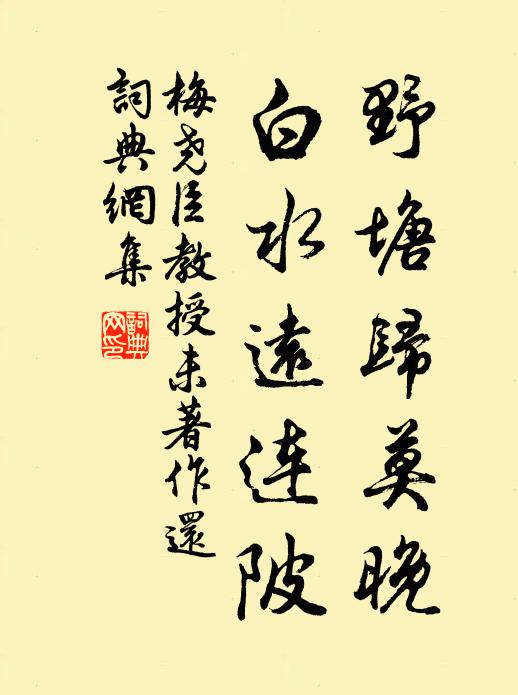 野塘歸莫晚
白水遠連陂
梅尧臣教授未著作還
詞典網集
詞典網印